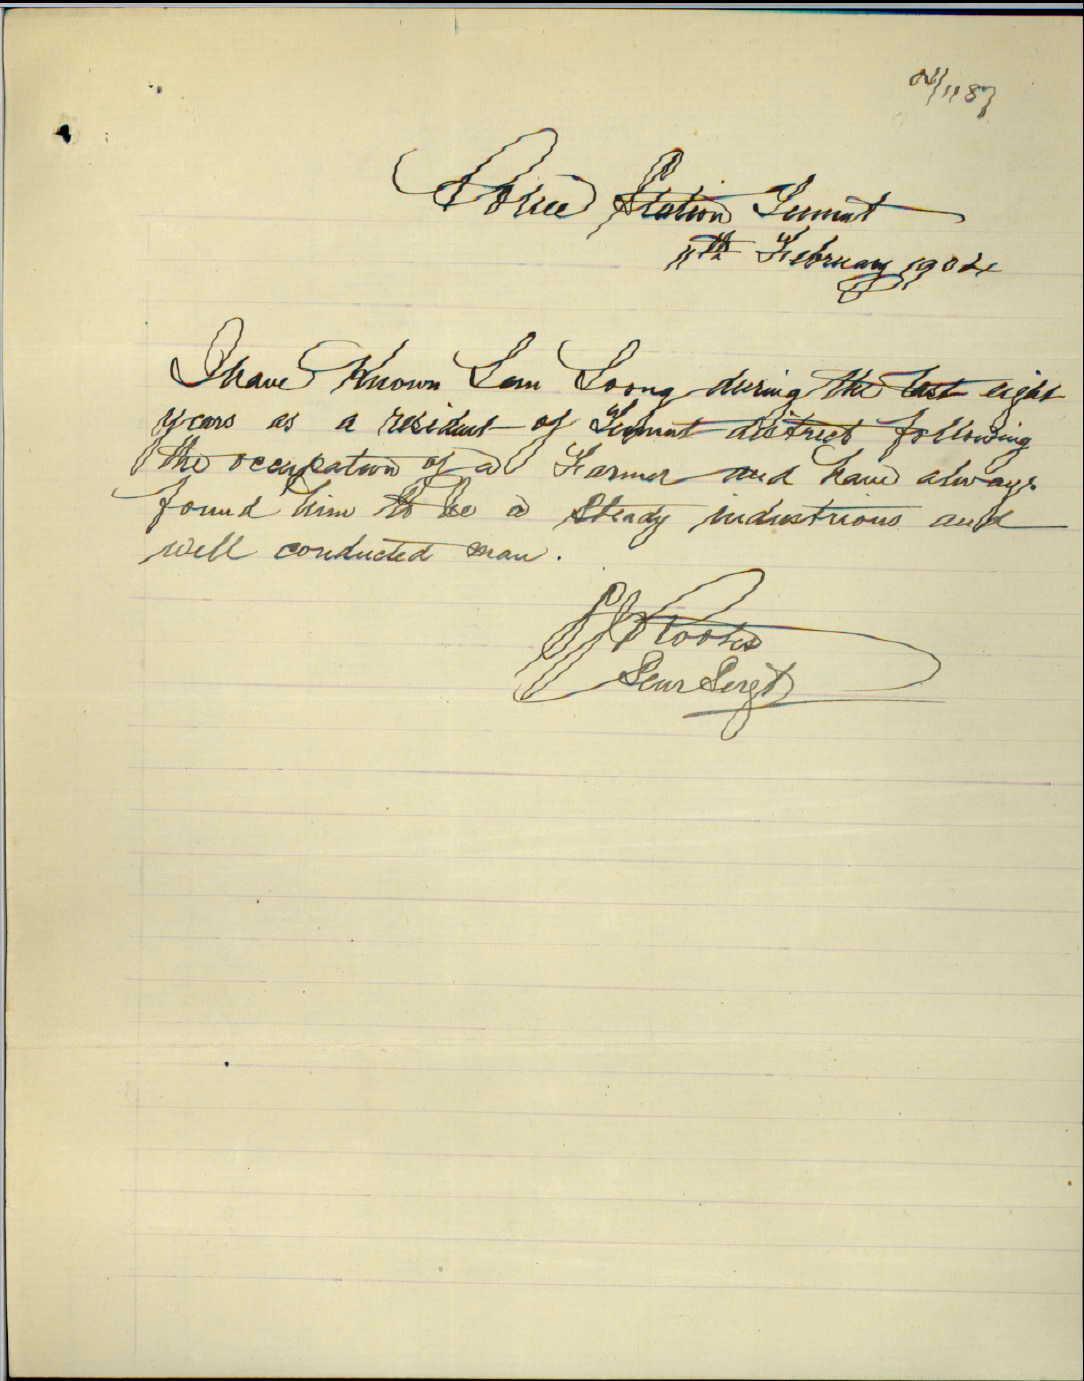 04/1187
Police Station Tumut
11th February 1904
I have Known Sam Loong during the last eight
years as a resident of Tumut district following
the occupation of a Farmer and have always
found him to be a steady industrious and
well conducted man.
Senr Sergt